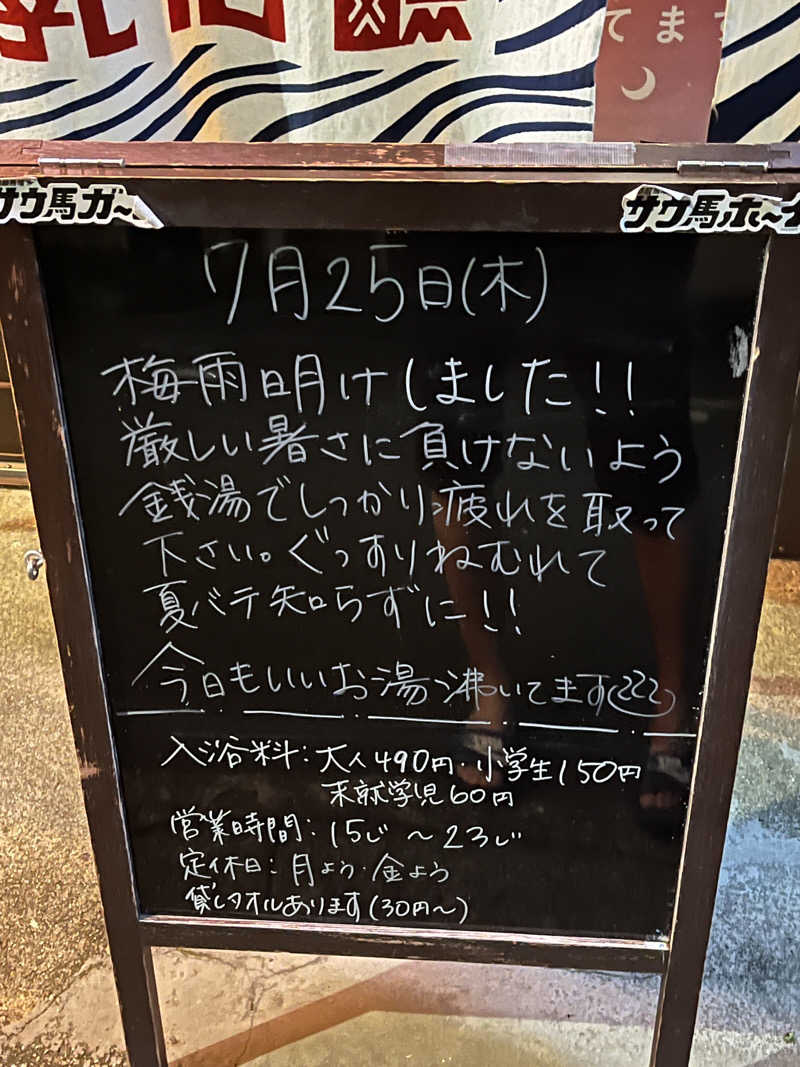 てます
サウ馬ガ〜
サウ馬ホ〜
7月25日(木)
梅雨明けしました!!
厳しい暑さに負けないよう
銭湯でしっかり疲れを取って
下さい。ぐっすりねむれて
夏バテ知らずに!!
今日もいいお湯沸いてます
入浴料:大人490円・小学生150円
未就学児60円
営業時間:15じ〜23じ
定休日:月よう・金よう
貸しタオルあります(30円〜)